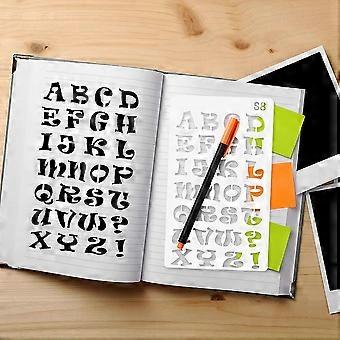 ABCD
EFGH
IJKL
MNOP
QRST
UVW?
XYZ!
S3
ABCD
EFGH
IJKL
MNOP
QRST
UVW?
XYZ!